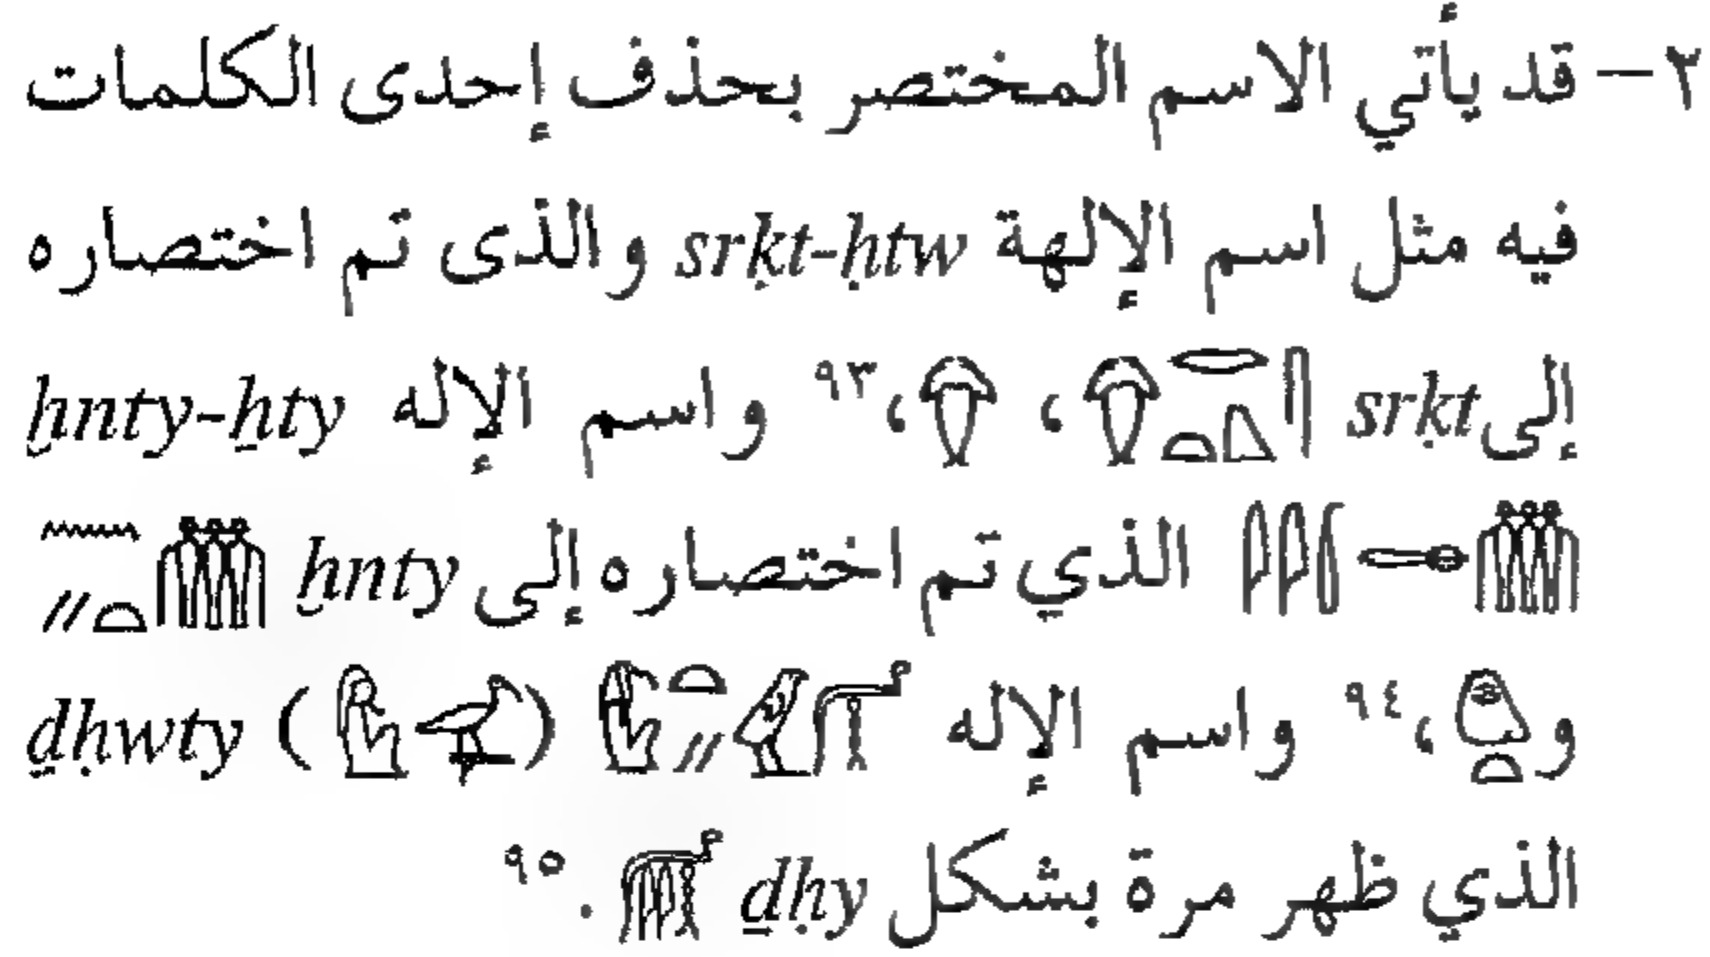 ٢ – قد يأتي الاسم المختصر بحذف إحدى الكلمات
فيه مثل اسم الإلهة srḳt-ḥtw والذى تم اختصاره
إلى srḳt ، ،٩٣ واسم الإله ḫnty-ẖty
الذي تم اختصاره إلى ḫnty
و ،٩٤ واسم الإله ( ) ḏḥwty
الذي ظهر مرة بشكل ḏḥy .٩٥